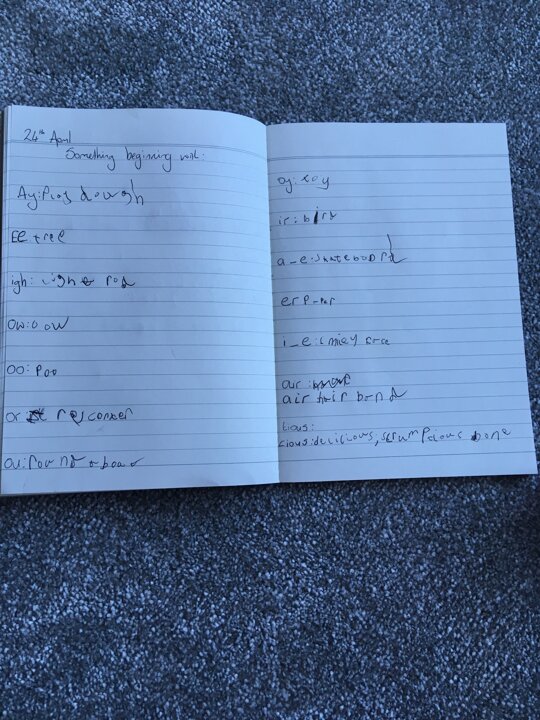 24th April
Something beginning with:
Ay: Play dough
EE: tree
igh: light rod
Ow: oow
OO: Poo
or
ou: round a bout
oy: toy
ir: bird
a_e: skateboard
er
i_e: smiley face
air
air hair band
tious:
cious: delicious, scrumptious bone